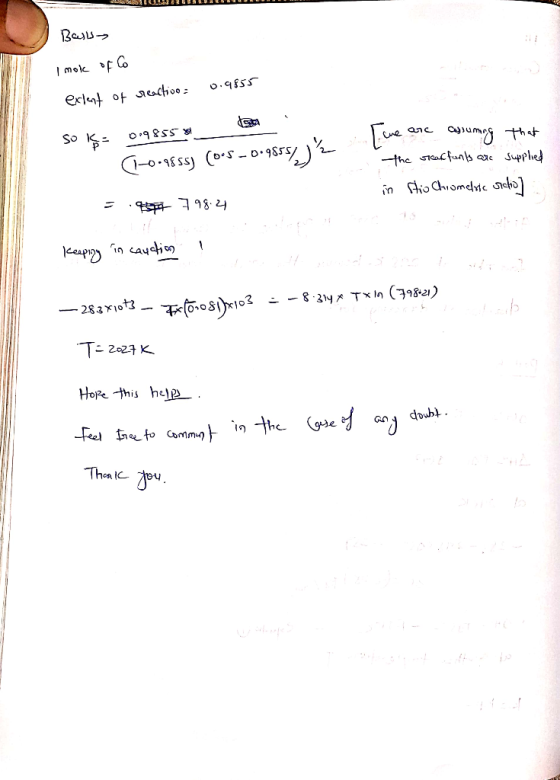 Basis →
1 mole of Co
extent of reaction = 0.9855
So Kp = 0.9855 / (1-0.9855) (0.5 - 0.9855/2)^1/2 [we are assuming that
the reactants are supplied
in Stiochiometric ratio]
= 798.21
Keeping in cauction 1
- 283×10^+3 - T×(0.081)×10^3 = - 8.314 × T × ln (798.21)
T = 2027 K
Hope this helps.
Feel free to comment in the case of any doubt.
Thank you.